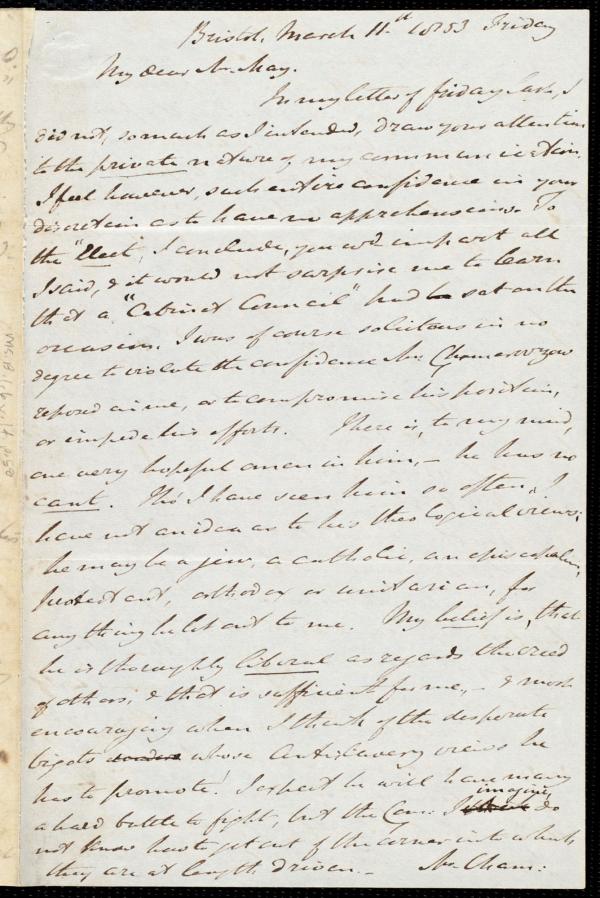 Bristol, March 11.th 1853 Friday
My dear Mr. May.
In my letter of friday last, I
did not, so much as I intended, draw your attention
to the private nature of my communication.
I feel however, such entire confidence in your
discretion as to have no apprehensions. To
the "Elect", I conclude, you wd. impart all
I said, & it would not surprise me to learn
that a "Cabinet Council" had sat on the
occasion. I was of course solicitous in no
degree to violate the confidence Mr. Chamerovzow
reposed in me, or to compromise his position,
or impede his efforts. There is, to my mind,
one very hopeful omen in him, — he has no
cant. Tho' I have seen him so often, I
have not an idea as to his theological views;
he may be a jew, a catholic, an episcopalian,
protestant, orthodox or unitarian, for
any thing he let out to me. My belief is, that
he is thoroughly liberal as regards the creed
of others, & that is sufficient for me, — & most
encouraging when I think of the desperate
bigots whose Antislavery views he
has to promote! I expect he will have many
a hard battle to fight, but the Com: I imagine do
not know how to get out of the corner into which
they are at length driven. — Mr. Cham: